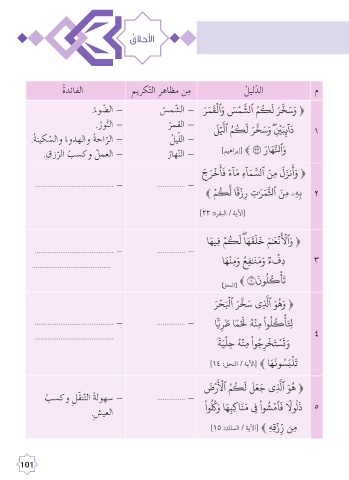 الأخلاق
م الدّليلُ مِن مظاهرِ التّكريمِ الفائدةُ
١
﴿ وَسَخَّرَ لَكُمُ ٱلشَّمۡسَ وَٱلۡقَمَرَ
دَآئِبَيۡنِۖ وَسَخَّرَ لَكُمُ ٱلَّيۡلَ
وَٱلنَّهَارَ ٣٣ ﴾ [إبراهيم]
– الشّمسُ
– القمرُ
– اللّيلُ
– النّهارُ
– الضّوءُ.
– النُّورُ.
– الرّاحةُ والهدوءُ والسّكينةُ.
– العملُ وكسبُ الرّزقِ.
٢
﴿ وَأَنزَلَ مِنَ ٱلسَّمَآءِ مَآءٗ فَأَخۡرَجَ
بِهِۦ مِنَ ٱلثَّمَرَٰتِ رِزۡقٗا لَّكُمۡ ﴾
[الآية / البقرة: ٢٢]
– ............
– ..............................
٣
﴿ وَٱلۡأَنۡعَٰمَ خَلَقَهَاۖ لَكُمۡ فِيهَا
دِفۡءٞ وَمَنَٰفِعُ وَمِنۡهَا
تَأۡكُلُونَ ٥ ﴾ [النحل]
– ............
– ..............................
..............................
٤
﴿ وَهُوَ ٱلَّذِى سَخَّرَ ٱلۡبَحۡرَ
لِتَأۡكُلُواْ مِنۡهُ لَحۡمٗا طَرِيّٗا
وَتَسۡتَخۡرِجُواْ مِنۡهُ حِلۡيَةٗ
تَلۡبَسُونَهَا ﴾ [الآية / النحل: ١٤]
– ............
– ..............................
..............................
٥
﴿ هُوَ ٱلَّذِى جَعَلَ لَكُمُ ٱلۡأَرۡضَ
ذَلُولٗا فَٱمۡشُواْ فِى مَنَاكِبِهَا وَكُلُواْ
مِن رِّزۡقِهِۦ ﴾ [الآية / الملك: ١٥]
– ............
– سهولةُ التّنقّلِ وكسبُ
العيشِ.
101